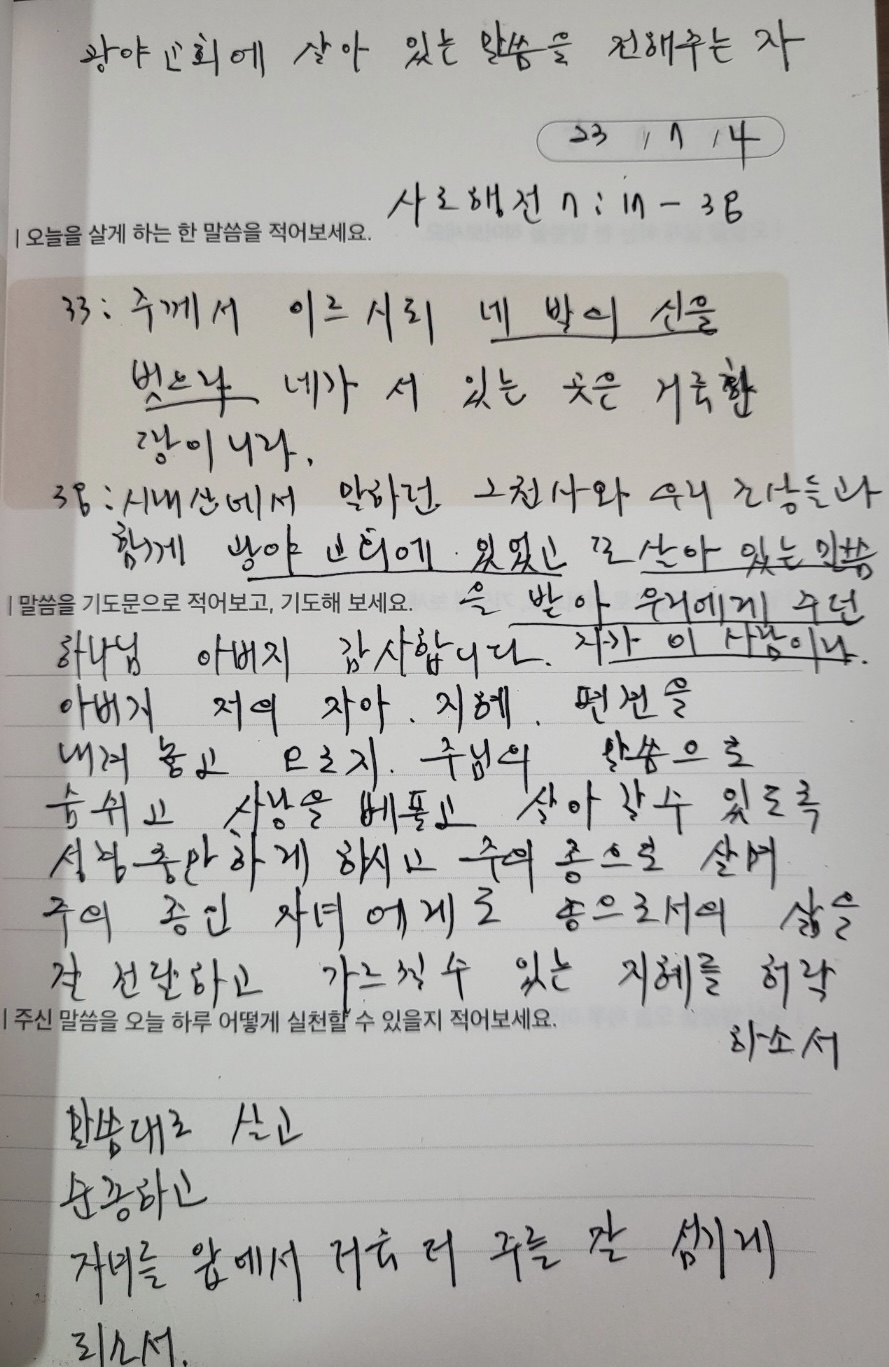 광야교회에 살아 있는 말씀을 전해주는 자
23 / 7 / 4
사도행전 7 : 17 - 38
| 오늘을 살게 하는 한 말씀을 적어보세요.
33 : 주께서 이르시되 네 발의 신을
벗으라 네가 서 있는 곳은 거룩한
땅이니라.
38 : 시내산에서 말하던 그천사와 우리 조상들과
함께 광야 교회에 있었고 또 살아 있는 말씀
을 받아 우리에게 주던
자가 이 사람이라.
| 말씀을 기도문으로 적어보고, 기도해 보세요.
하나님 아버지 감사합니다.
아버지 저의 자아. 지혜. 편견을
내려 놓고 오로지. 주님의 말씀으로
숨쉬고 사랑을 베풀고 살아 갈수 있도록
성령충만하게 하시고 주의 종으로 살며
주의 종인 자녀에게로 종으로서의 삶을
잘 전달하고 가르칠수 있는 지혜를 허락
하소서
| 주신 말씀을 오늘 하루 어떻게 실천할 수 있을지 적어보세요.
말씀대로 살고
순종하고
자녀를 앞에서 더 주를 잘 섬기게
되소서.